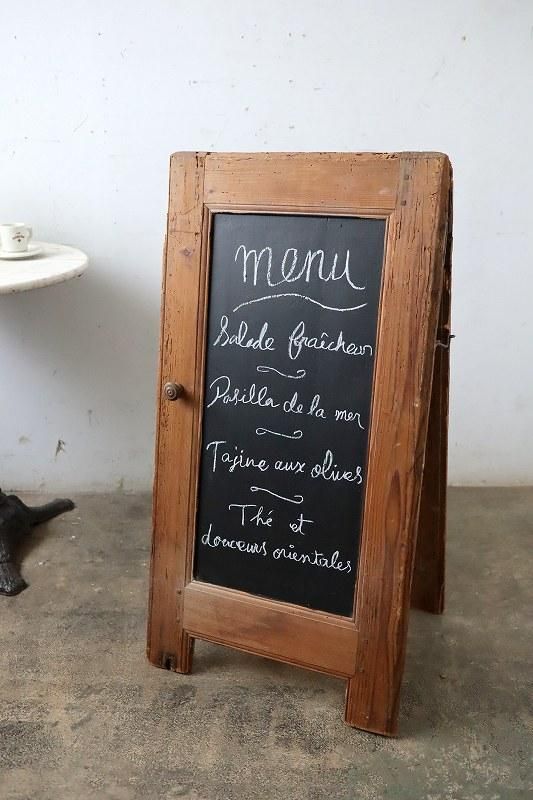 menu
Salade fraîcheur
Pasilla de la mer
Tajine aux olives
Thé et
douceurs orientales